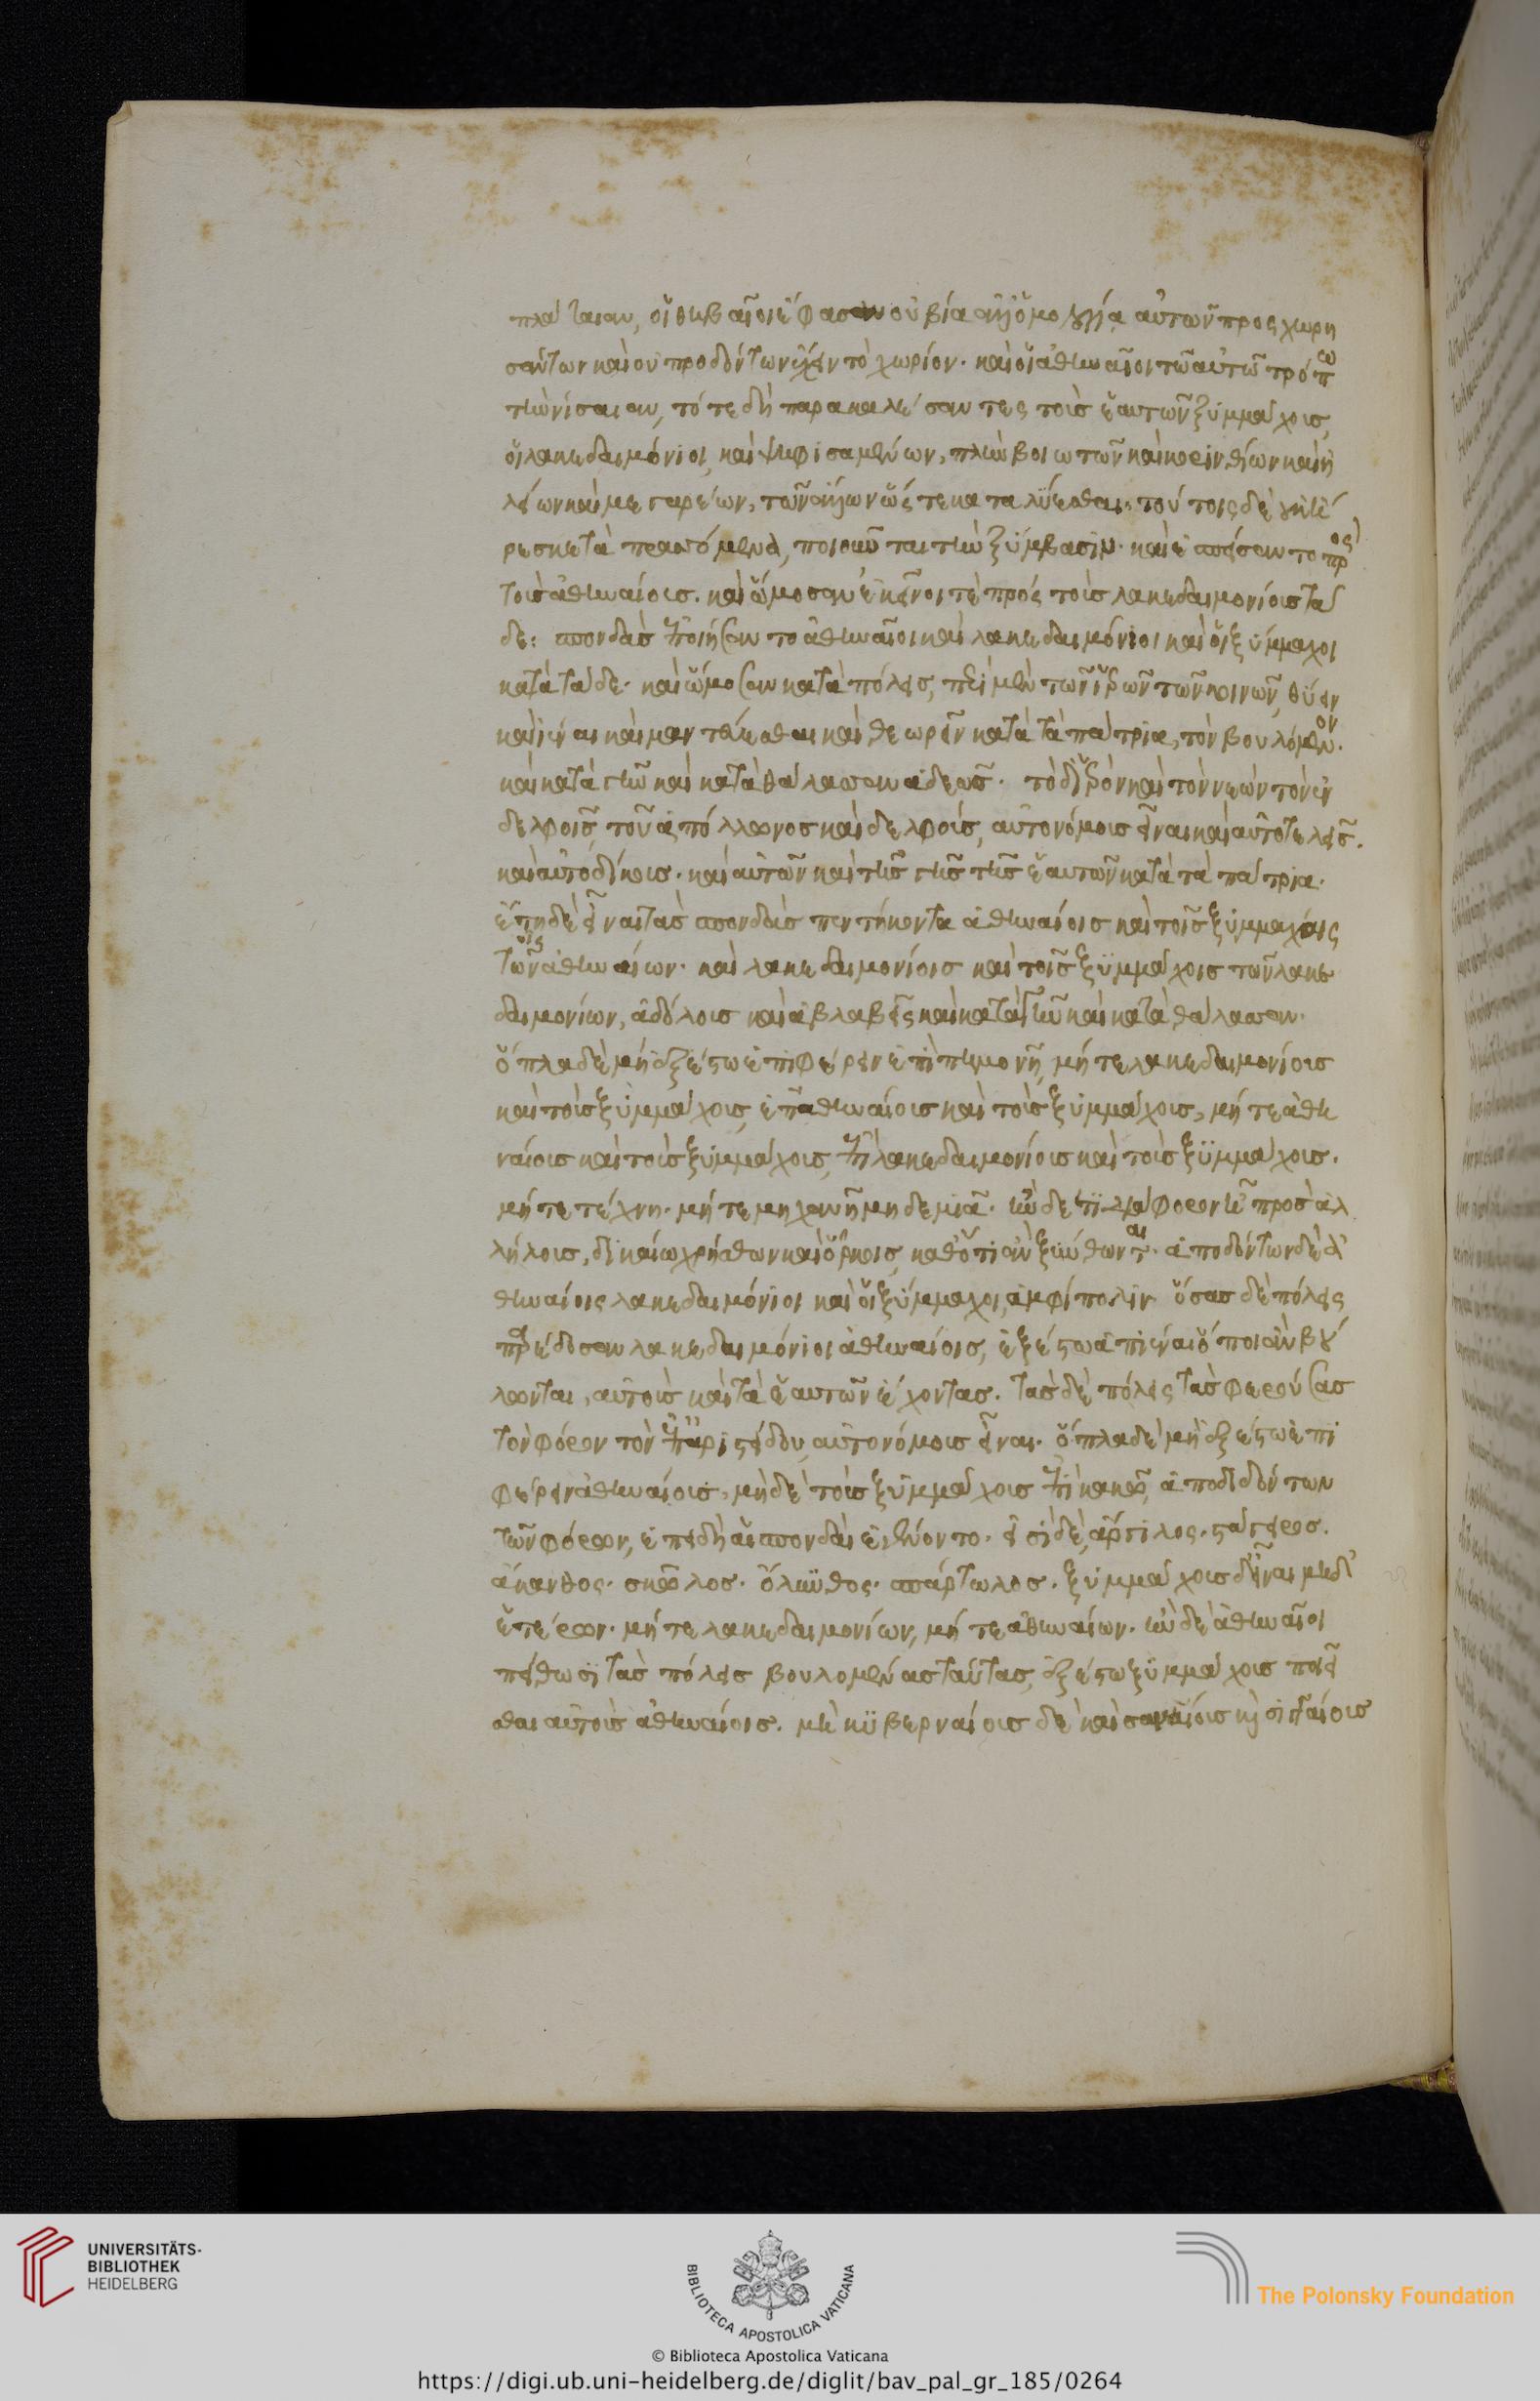 πλάταιαν, οἱ θηβαῖοι ἔφασαν οὐ βία ἀλλ' ὁμολογία αὐτῶν προσχωρη
σάντων καὶ οὐ προδόντων ἔχειν τὸ χωρίον. καὶ οἱ ἀθηναῖοι τῶ αὐτῶ τρόπω
τὴν νίσαιαν, τότε δὴ παρακαλέσαντες τοὺς ἑαυτῶν ξυμμάχους,
οἱ λακεδαιμόνιοι, καὶ ψηφισαμένων, πλὴν βοιωτῶν καὶ κορινθίων καὶ ἠ
λείων καὶ μεγαρέων, τῶν ἄλλων ὥστε καταλύεσθαι, τούτοις δὲ οὐκ ἤ
ρεσκε τὰ πρασσόμενα, ποιοῦνται τὴν ξύμβασιν. καὶ ἐσπείσαντο πρὸς
τοὺς ἀθηναίους. καὶ ὤμοσαν ἐκεῖνοι τὲ πρὸς τοὺς λακεδαιμονίους τά
δε: σπονδὰς ἐποιήσαντο ἀθηναῖοι καὶ λακεδαιμόνιοι καὶ οἱ ξύμμαχοι
κατὰ τάδε. καὶ ὤμοσαν κατὰ πόλεις, περὶ μὲν τῶν ἱερῶν τῶν κοινῶν, θύειν
καὶ ἰέναι καὶ μαντεύεσθαι καὶ θεωρεῖν κατὰ τὰ πάτρια, τὸν βουλόμενον.
καὶ κατὰ γῆν καὶ κατὰ θάλασσαν ἀδεῶς. τὸ δ' ἱερὸν καὶ τὸν νεὼν τὸν ἐν
δελφοῖς τοῦ ἀπόλλωνος καὶ δελφοὺς, αὐτονόμους εἶναι καὶ αὐτοτελεῖς.
καὶ αὐτοδίκους. καὶ αὐτῶν καὶ τῆς γῆς τῆς ἑαυτῶν κατὰ τὰ πάτρια.
ἔτη δὲ εἶναι τὰς σπονδὰς πεντήκοντα ἀθηναίοις καὶ τοῖς ξυμμάχοις
τοῖς τῶν ἀθηναίων. καὶ λακεδαιμονίοις καὶ τοῖς ξυμμάχοις τῶν λακε
δαιμονίων, ἀδόλους καὶ ἀβλαβεῖς καὶ κατὰ γῆν καὶ κατὰ θάλασσαν.
ὅπλα δὲ μὴ ἐξέστω ἐπιφέρειν ἐπὶ πημονῆ, μήτε λακεδαιμονίους
καὶ τοὺς ξυμμάχους, ἐπ' ἀθηναίους καὶ τοὺς ξυμμάχους, μήτε ἀθη
ναίους καὶ τοὺς ξυμμάχους, ἐπὶ λακεδαιμονίους καὶ τοὺς ξυμμάχους.
μήτε τέχνη. μήτε μηχανῆ μηδεμιᾶ. ἢν δέ τι διάφορον ἦ πρὸς ἀλ
λήλους, δικαίω χρήσθων καὶ ὅρκοις, καθ' ὅτι ἂν ξυνθῶνται. ἀποδόντων δὲ ἀ
θηναίοις λακεδαιμόνιοι καὶ οἱ ξύμμαχοι, ἀμφίπολιν. ὅσας δὲ πόλεις
παρέδοσαν λακεδαιμόνιοι ἀθηναίοις, ἐξέστω ἀπιέναι ὅποι ἂν βού
λωνται, αὐτοὺς καὶ τὰ ἑαυτῶν ἔχοντας. τὰς δὲ πόλεις τὰς φερούσας
τὸν φόρον τὸν ἐπ' ἀριστείδου, αὐτονόμους εἶναι. ὅπλα δὲ μὴ ἐξέστω ἐπι
φέρειν ἀθηναίους, μηδὲ τοὺς ξυμμάχους ἐπὶ κακῶ, ἀποδιδόντων
τῶν φόρον, ἐπειδὴ αἱ σπονδαὶ ἐγένοντο. εἰσὶ δὲ, ἄργιλος. στάγειρος.
ἄκανθος. σκῶλος. ὄλυνθος. σπάρτωλος. ξυμμάχους δ' εἶναι μηδ'
ἑτέρων. μήτε λακεδαιμονίων, μήτε ἀθηναίων. ἢν δὲ ἀθηναῖοι
πείθωσι τὰς πόλεις βουλομένας ταύτας, ἐξέστω ξυμμάχους ποιεῖ
σθαι αὐτοὺς ἀθηναίους. μηκυβερναίους δὲ καὶ σαναίους καὶ σιγγαίους
UNIVERSITÄTS-
BIBLIOTHEK
HEIDELBERG
BIBLIOTECA APOSTOLICA VATICANA
The Polonsky Foundation
© Biblioteca Apostolica Vaticana
https://digi.ub.uni-heidelberg.de/diglit/bav_pal_gr_185/0264